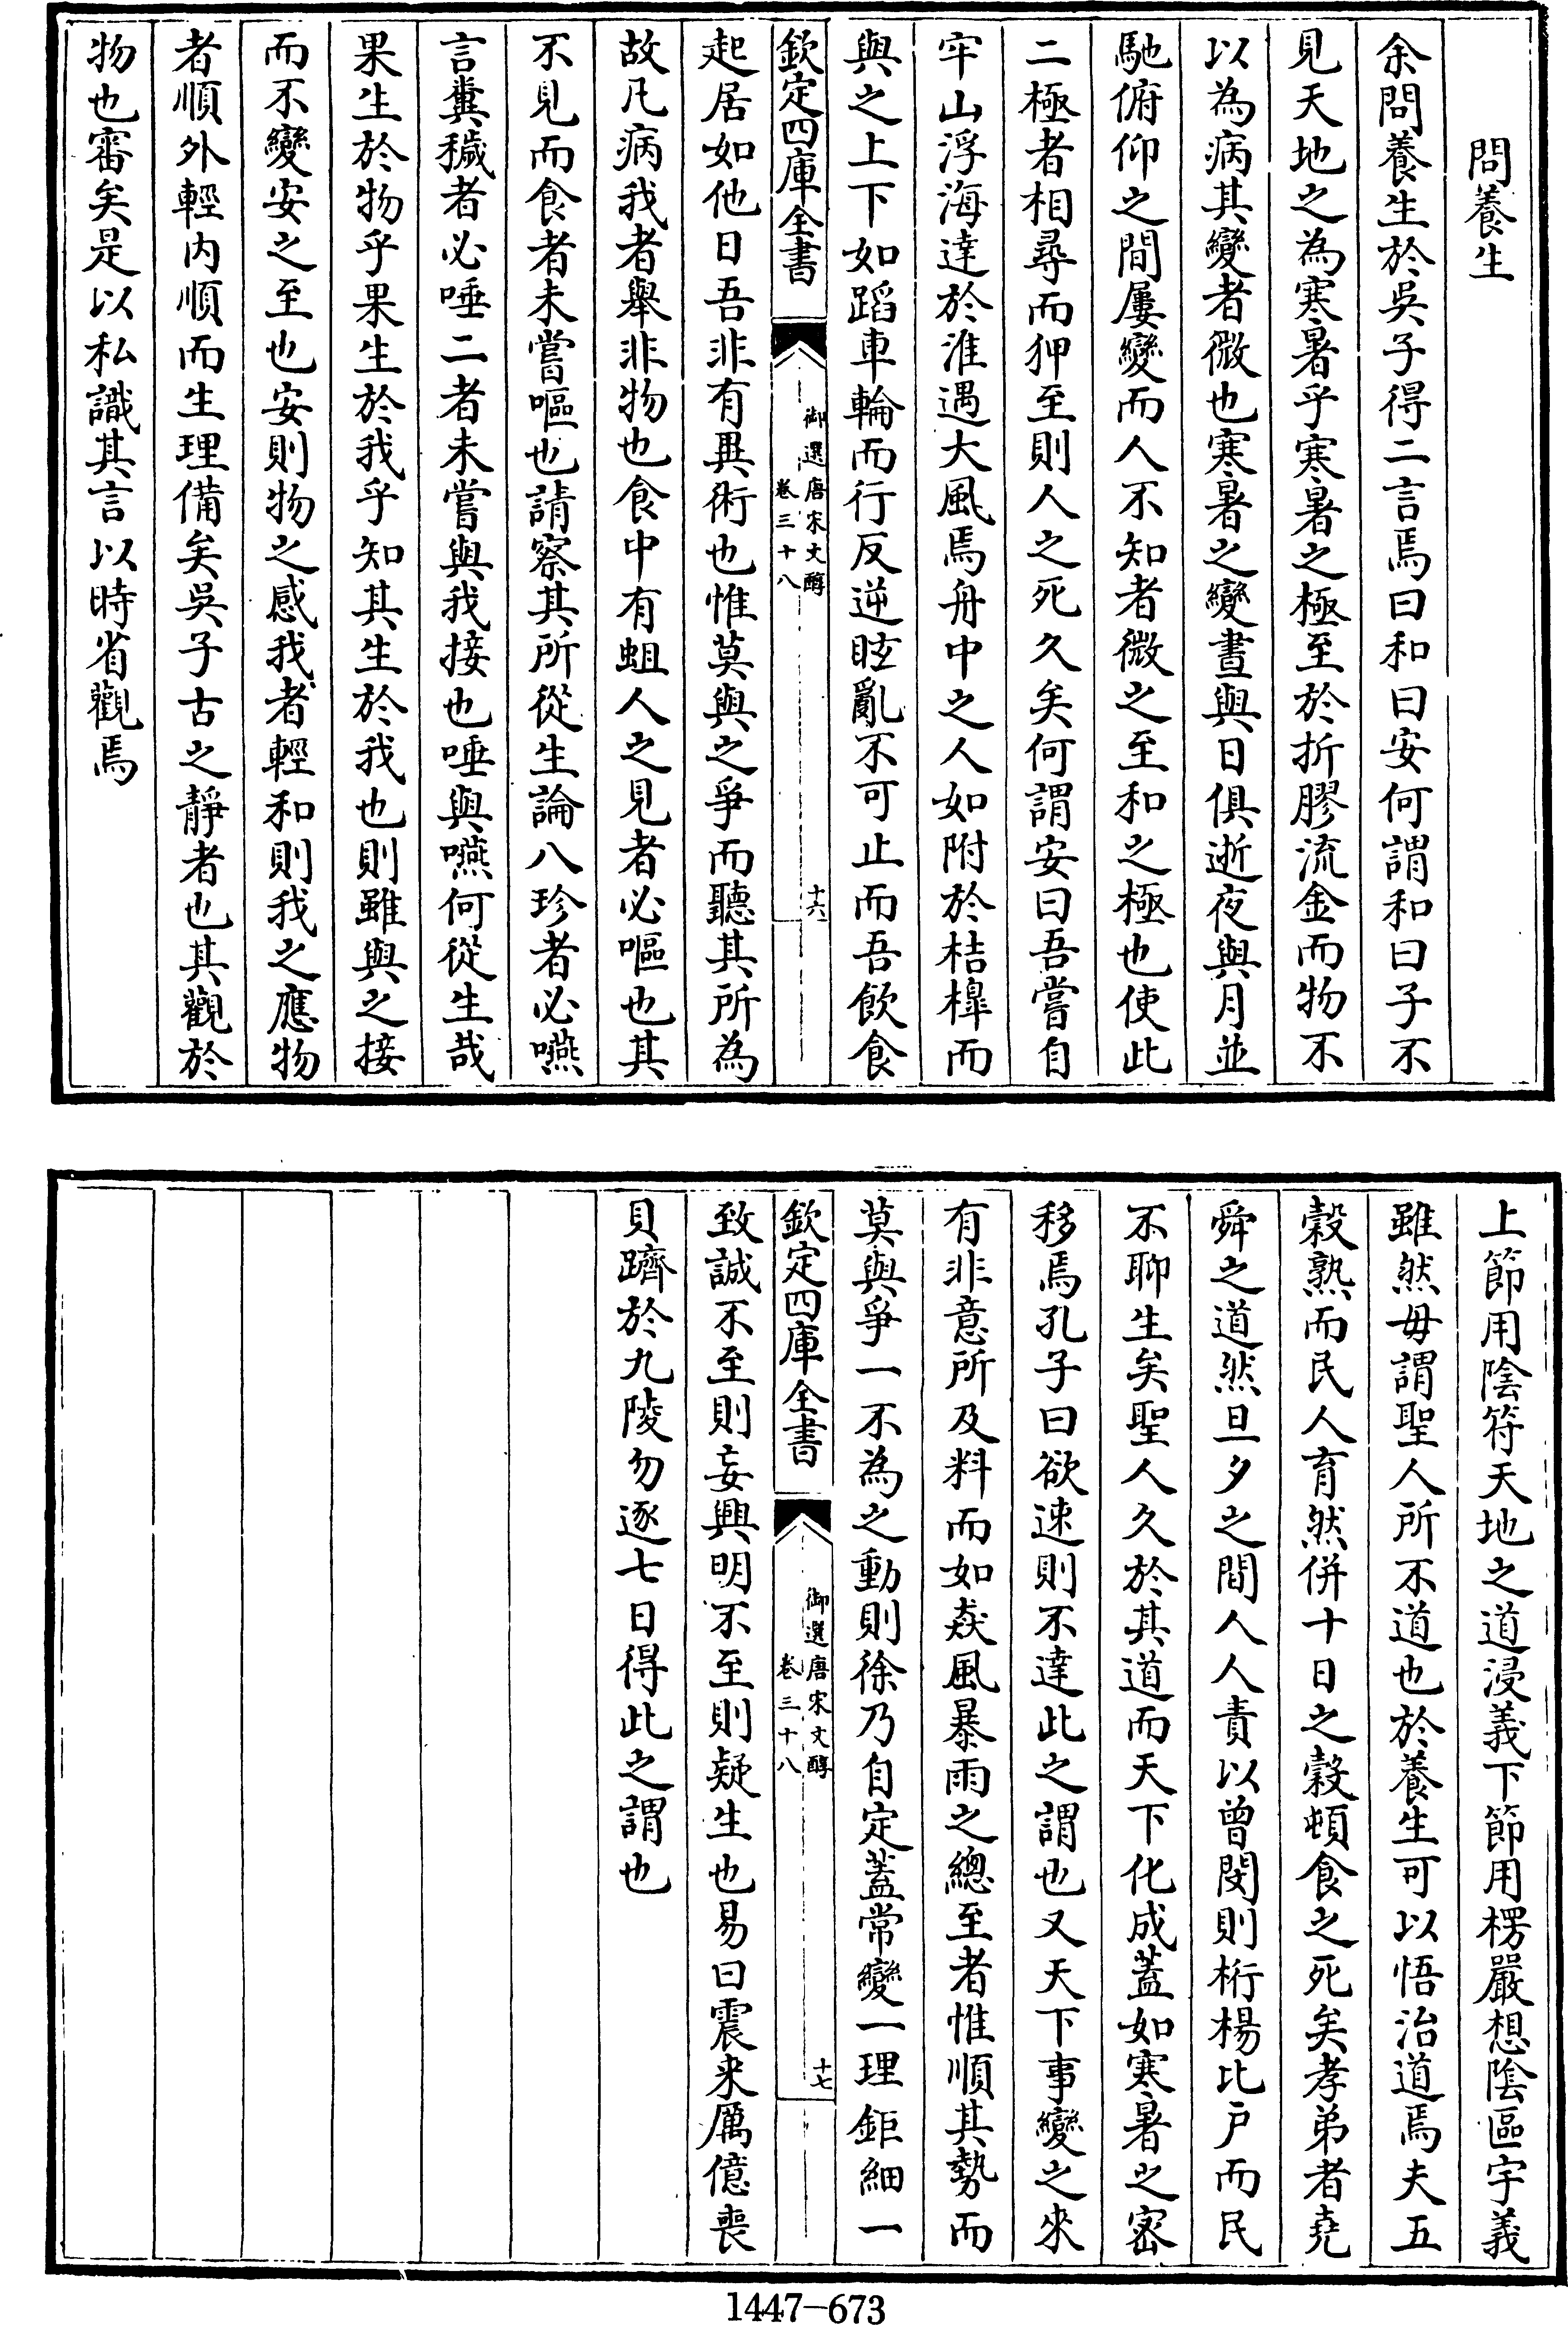 問養生
余問養生於吳子得二言焉曰和曰安何謂和曰子不
見天地之為寒暑乎寒暑之極至於折膠流金而物不
以為病其變者微也寒暑之變晝與日俱逝夜與月並
馳俯仰之間屢變而人不知者微之至和之極也使此
二極者相尋而狎至則人之死久矣何謂安曰吾嘗自
牢山浮海達於淮遇大風焉舟中之人如附於桔槹而
與之上下如蹈車輪而行反逆眩亂不可止而吾飲食
欽定四庫全書
御選唐宋文醇
卷三十八
十六
起居如他日吾非有異術也惟莫與之爭而聽其所為
故凡病我者舉非物也食中有蛆人之見者必嘔也其
不見而食者未嘗嘔也請察其所從生論八珍者必嚥
言糞穢者必唾二者未嘗與我接也唾與嚥何從生哉
果生於物乎果生於我乎知其生於我也則雖與之接
而不變安之至也安則物之感我者輕和則我之應物
者順外輕內順而生理備矣吳子古之靜者也其觀於
物也審矣是以私識其言以時省觀焉
上節用陰符天地之道浸義下節用楞嚴想陰區宇義
雖然毋謂聖人所不道也於養生可以悟治道焉夫五
穀熟而民人育然併十日之穀頓食之死矣孝弟者堯
舜之道然旦夕之間人人責以曾閔則桁楊比戶而民
不聊生矣聖人久於其道而天下化成蓋如寒暑之密
移焉孔子曰欲速則不達此之謂也又天下事變之來
有非意所及料而如猋風暴雨之總至者惟順其勢而
莫與爭一不為之動則徐乃自定蓋常變一理鉅細一
欽定四庫全書
御選唐宋文醇
卷三十八
十七
致誠不至則妄興明不至則疑生也易曰震来厲億喪
貝躋於九陵勿逐七日得此之謂也
1447-673